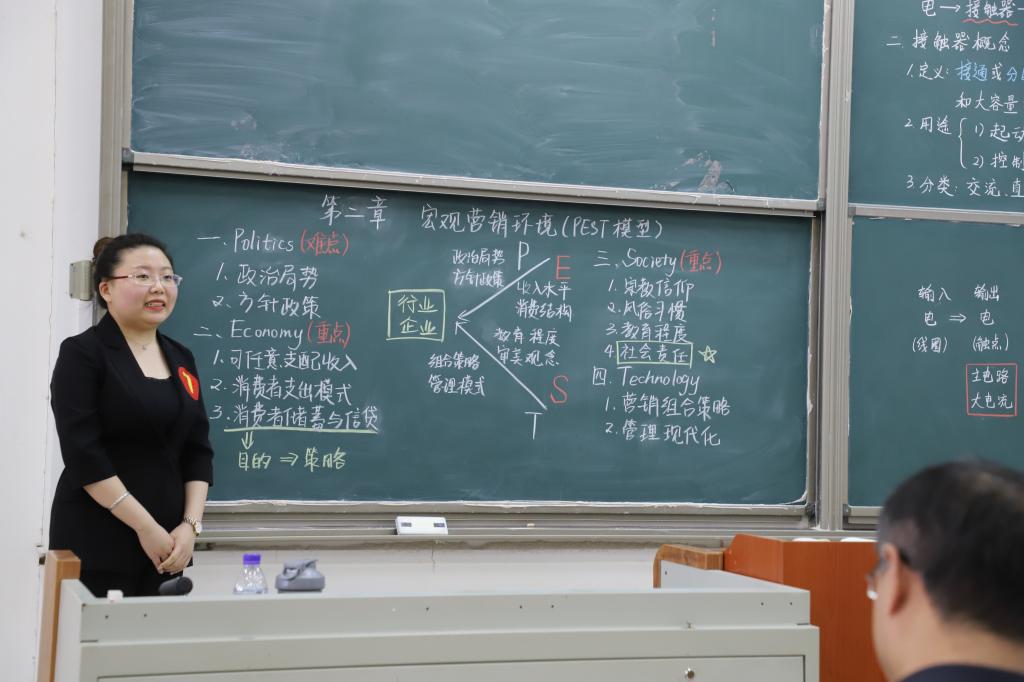 第二章 宏观营销环境(PEST模型)
一、Politics(难点)
1. 政治局势
2. 方针政策
二、Economy(重点)
1. 可任意支配收入
2. 消费者支出模式
3. 消费者储蓄与信贷
目的 ⇒ 策略
行业
企业
P
政治局势
方针政策
E
收入水平
消费结构
教育程度
审美观念
S
组合策略
管理模式
T
三、Society(重点)
1. 宗教信仰
2. 风俗习惯
3. 教育程度
4 社会责任 ☆
四、Technology
1. 营销组合策略
2. 管理现代化
电 → 接触器
二、接触器概念
1. 定义: 接通或分
和大容量
2 用途 { 1) 起动
2) 控制
3 分类: 交流、直
输入 输出
电 ⇒ 电
(线圈) (触点)
主电路
大电流